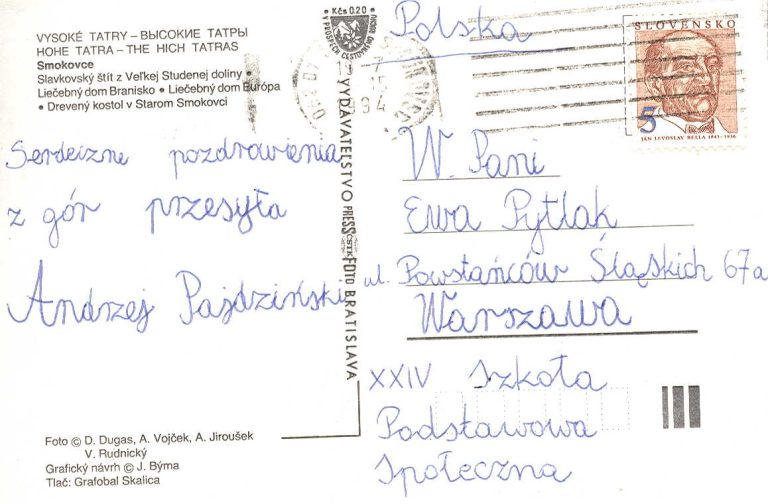 VYSOKÉ TATRY – ВЫСОКИЕ ТАТРЫ
HOHE TATRA – THE HIGH TATRAS
Smokovce
Slavkovský štít z Veľkej Studenej doliny •
Liečebný dom Branisko • Liečebný dom Európa
• Drevený kostol v Starom Smokovci
Serdeczne pozdrowienia
z gór przesyła
Andrzej Pajdziński
Foto © D. Dugas, A. Vojček, A. Jiroušek
V. Rudnický
Grafický návrh © J. Býma
Tlač: Grafobal Skalica
• Kčs 0.20 •
V PROSPECH CESTOVNÉHO RUCHU
VYDAVATEĽSTVO PRESSFOTO BRATISLAVA
ČSTK
Polska
SLOVENSKO
5
JÁN LEVOSLAV BELLA 1843-1936
W. Pani
Ewa Pytlak
ul. Powstańców Śląskich 67a
Warszawa
XXIV Szkoła
Podstawowa
Społeczna